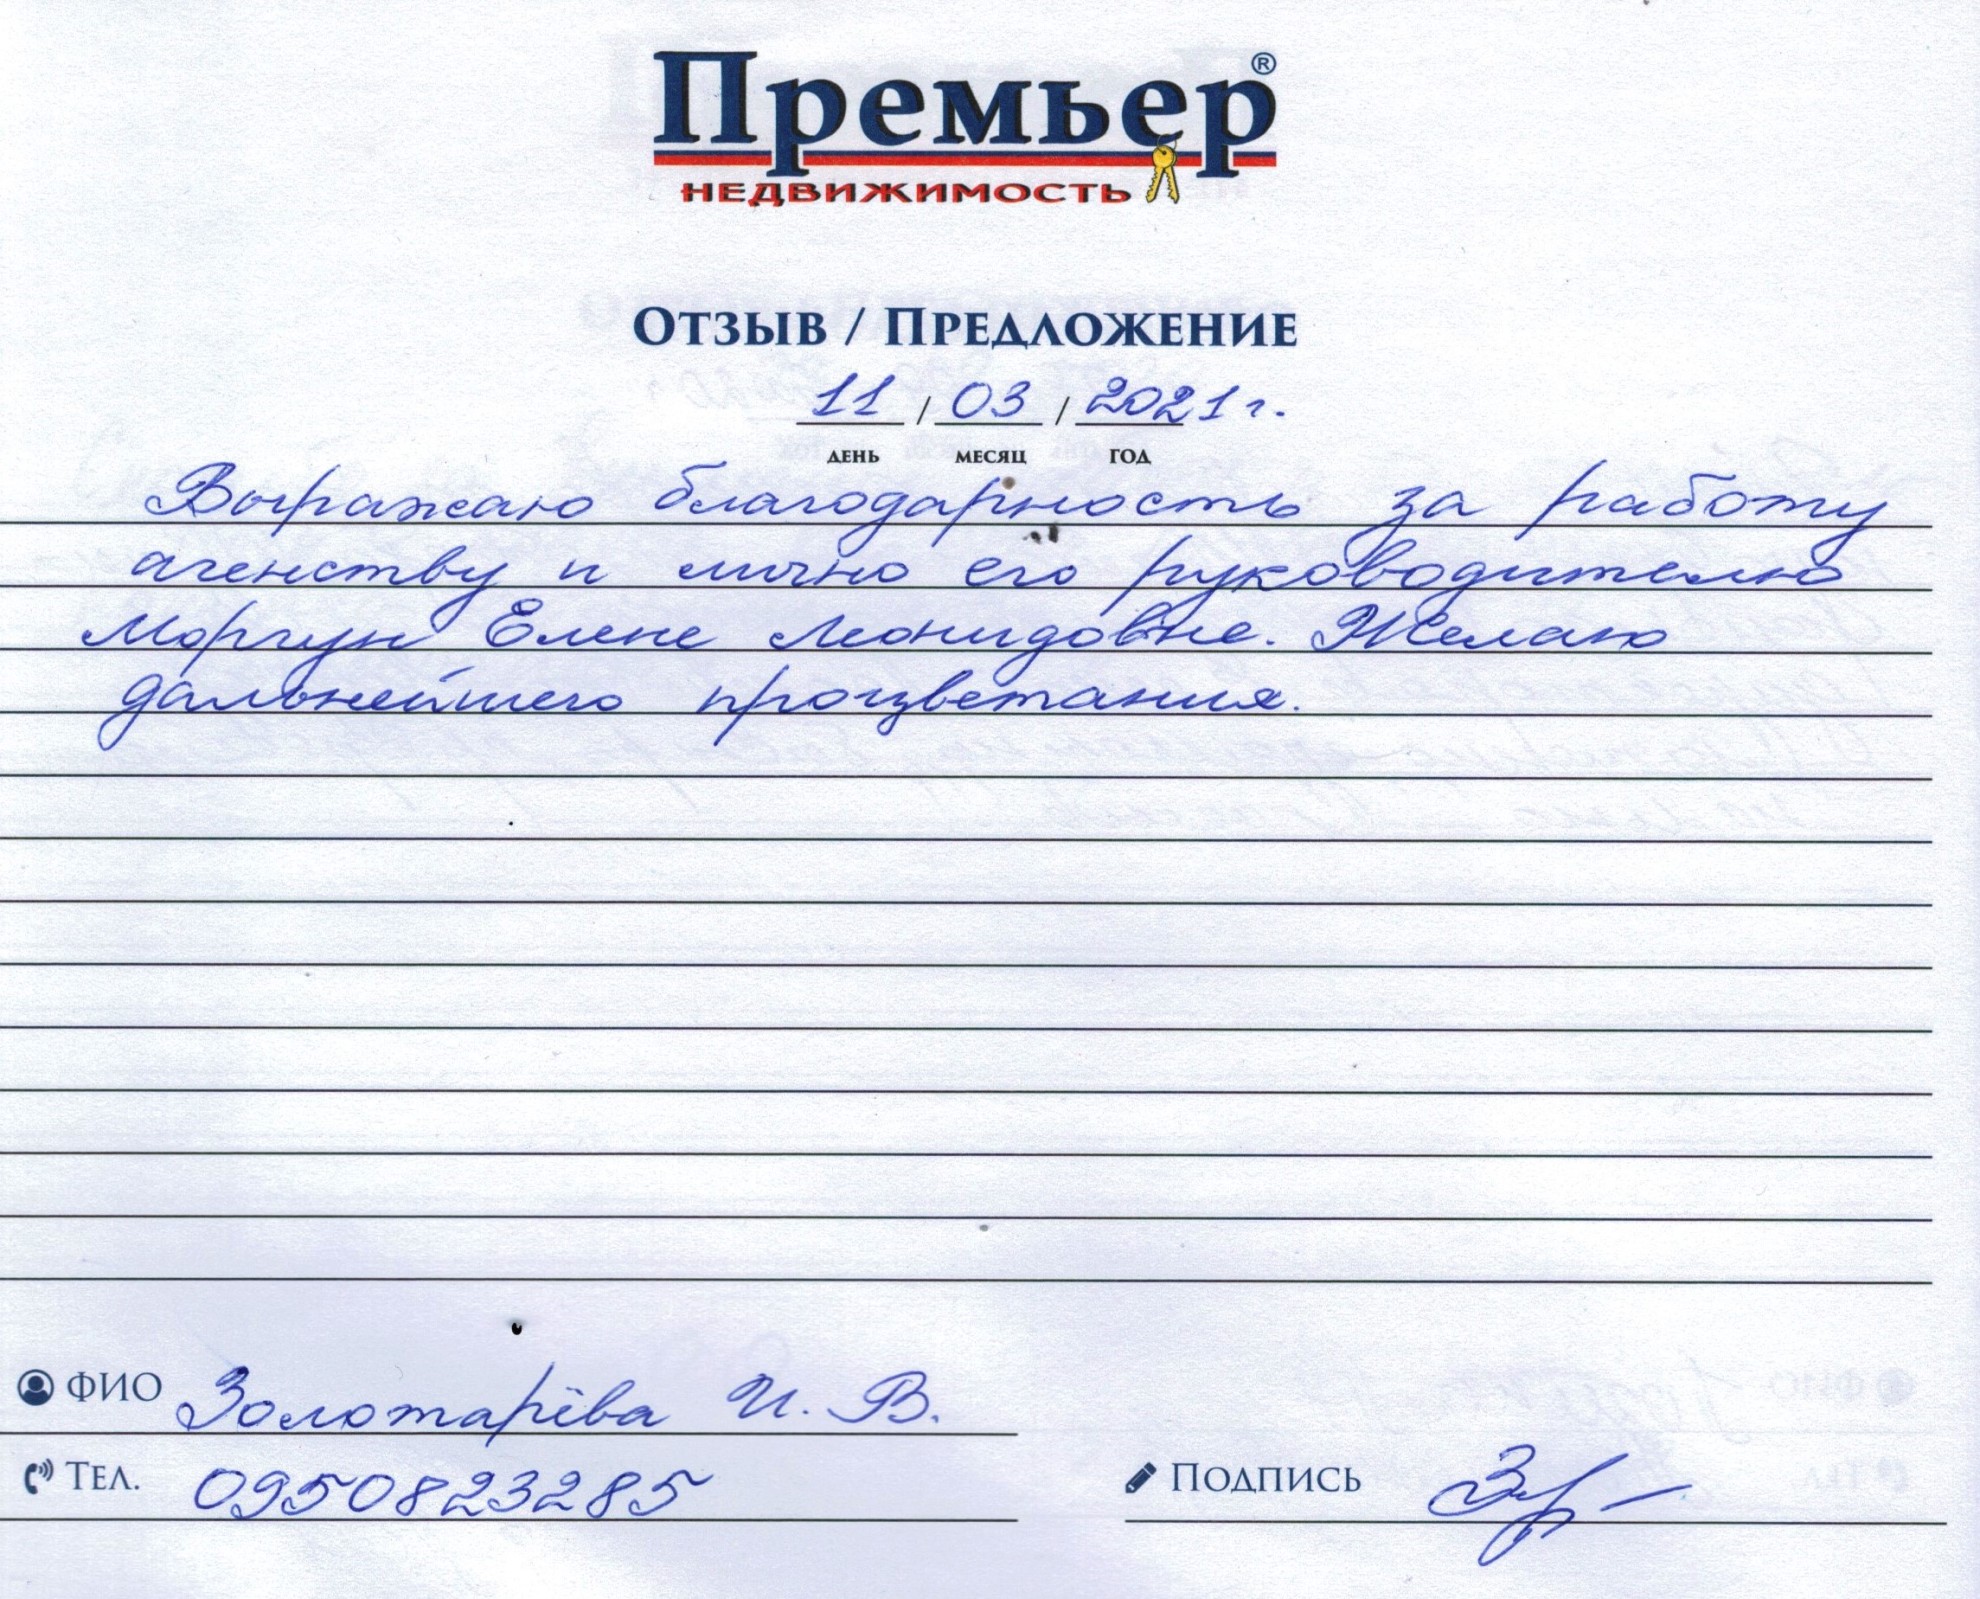 Премьер®
НЕДВИЖИМОСТЬ
ОТЗЫВ / ПРЕДЛОЖЕНИЕ
11 / 03 / 2021 г.
ДЕНЬ МЕСЯЦ ГОД
Выражаю благодарность за работу
агенству и лично его руководителю
Моргун Елене Леонидовне. Желаю
дальнейшего процветания.
ФИО Золотарёва И. В.
ТЕЛ. 0950823285
ПОДПИСЬ